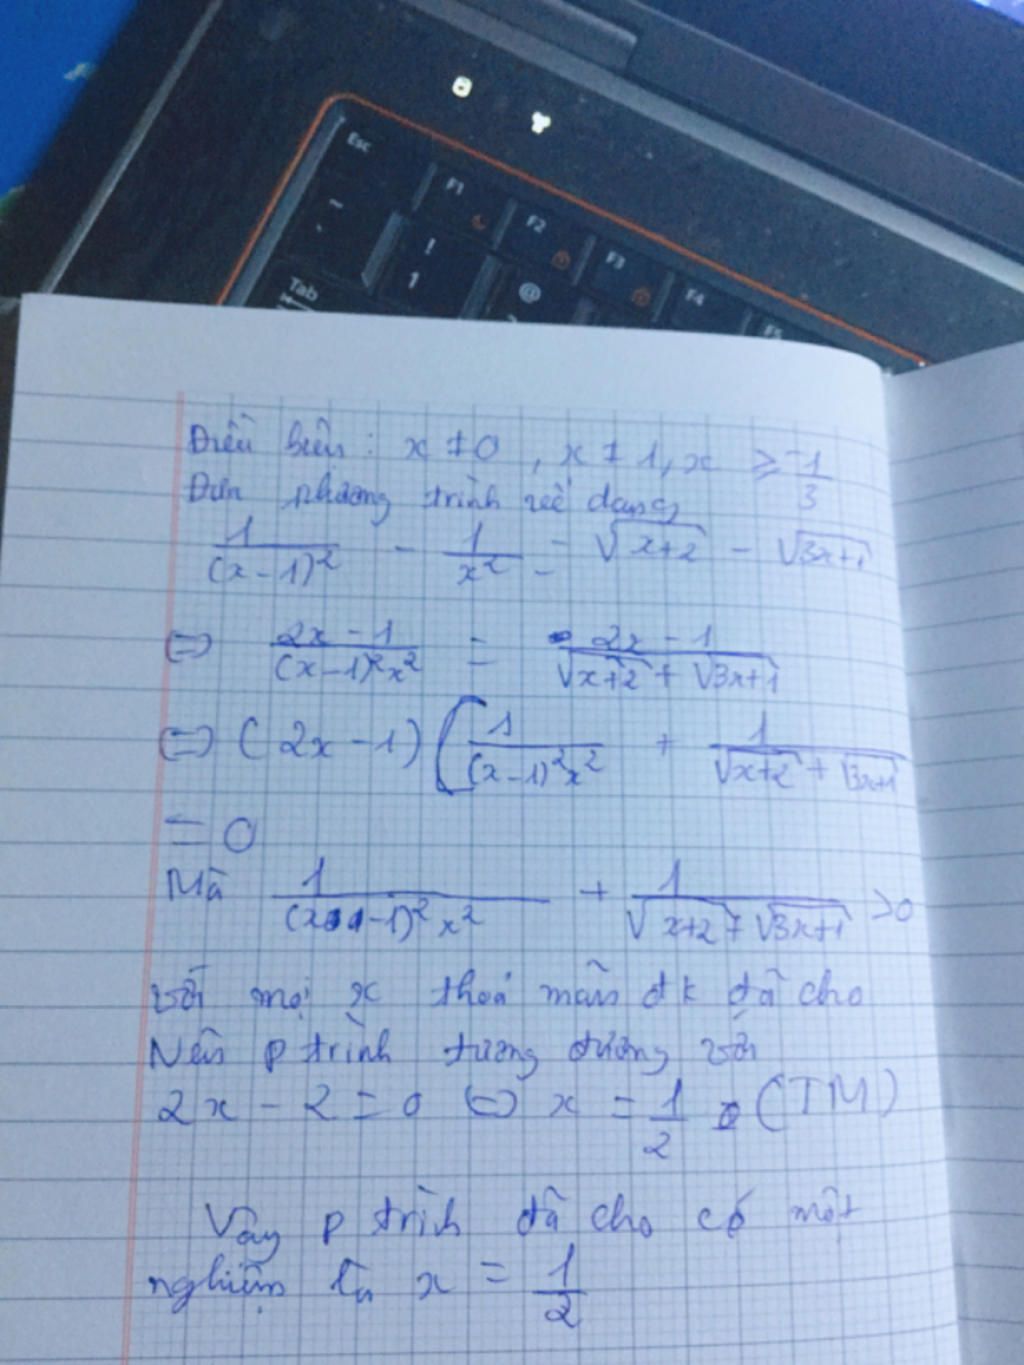 Esc
F1
F2
F3
F4
F5
~
`
!
1
@
Tab
Điều kiện : x ≠ 0 , x ≠ 1, x ≥ -1/3
Đưa phương trình về dạng
1/(x-1)² - 1/x² = √(x+2) - √(3x+1)
⇔ (2x-1)/((x-1)²x²) = (2x-1)/(√(x+2) + √(3x+1))
⇔ (2x-1) [ 1/((x-1)²x²) + 1/(√(x+2) + √(3x+1))
= 0
Mà 1/((x-1)²x²) + 1/(√(x+2) + √(3x+1)) >0
với mọi x thoả mãn đk đã cho
Nên p trình tương đương với
2x - 2 = 0 ⇔ x = 1/2 (TM)
Vậy p trình đã cho có một
nghiệm là x = 1/2